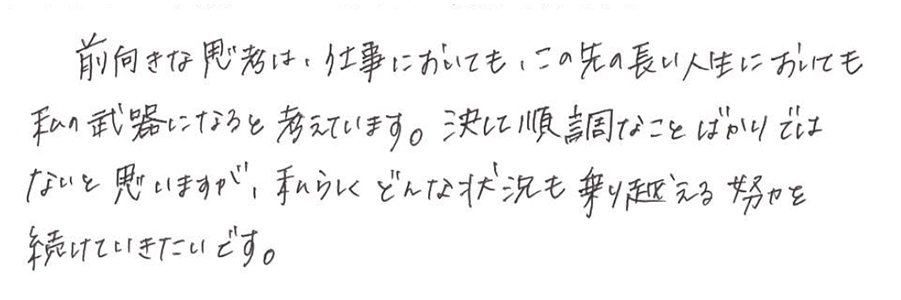 前向きな思考は、仕事においても、この先の長い人生においても
私の武器になると考えています。決して順調なことばかりでは
ないと思いますが、私らしくどんな状況も乗り越える努力を
続けていきたいです。